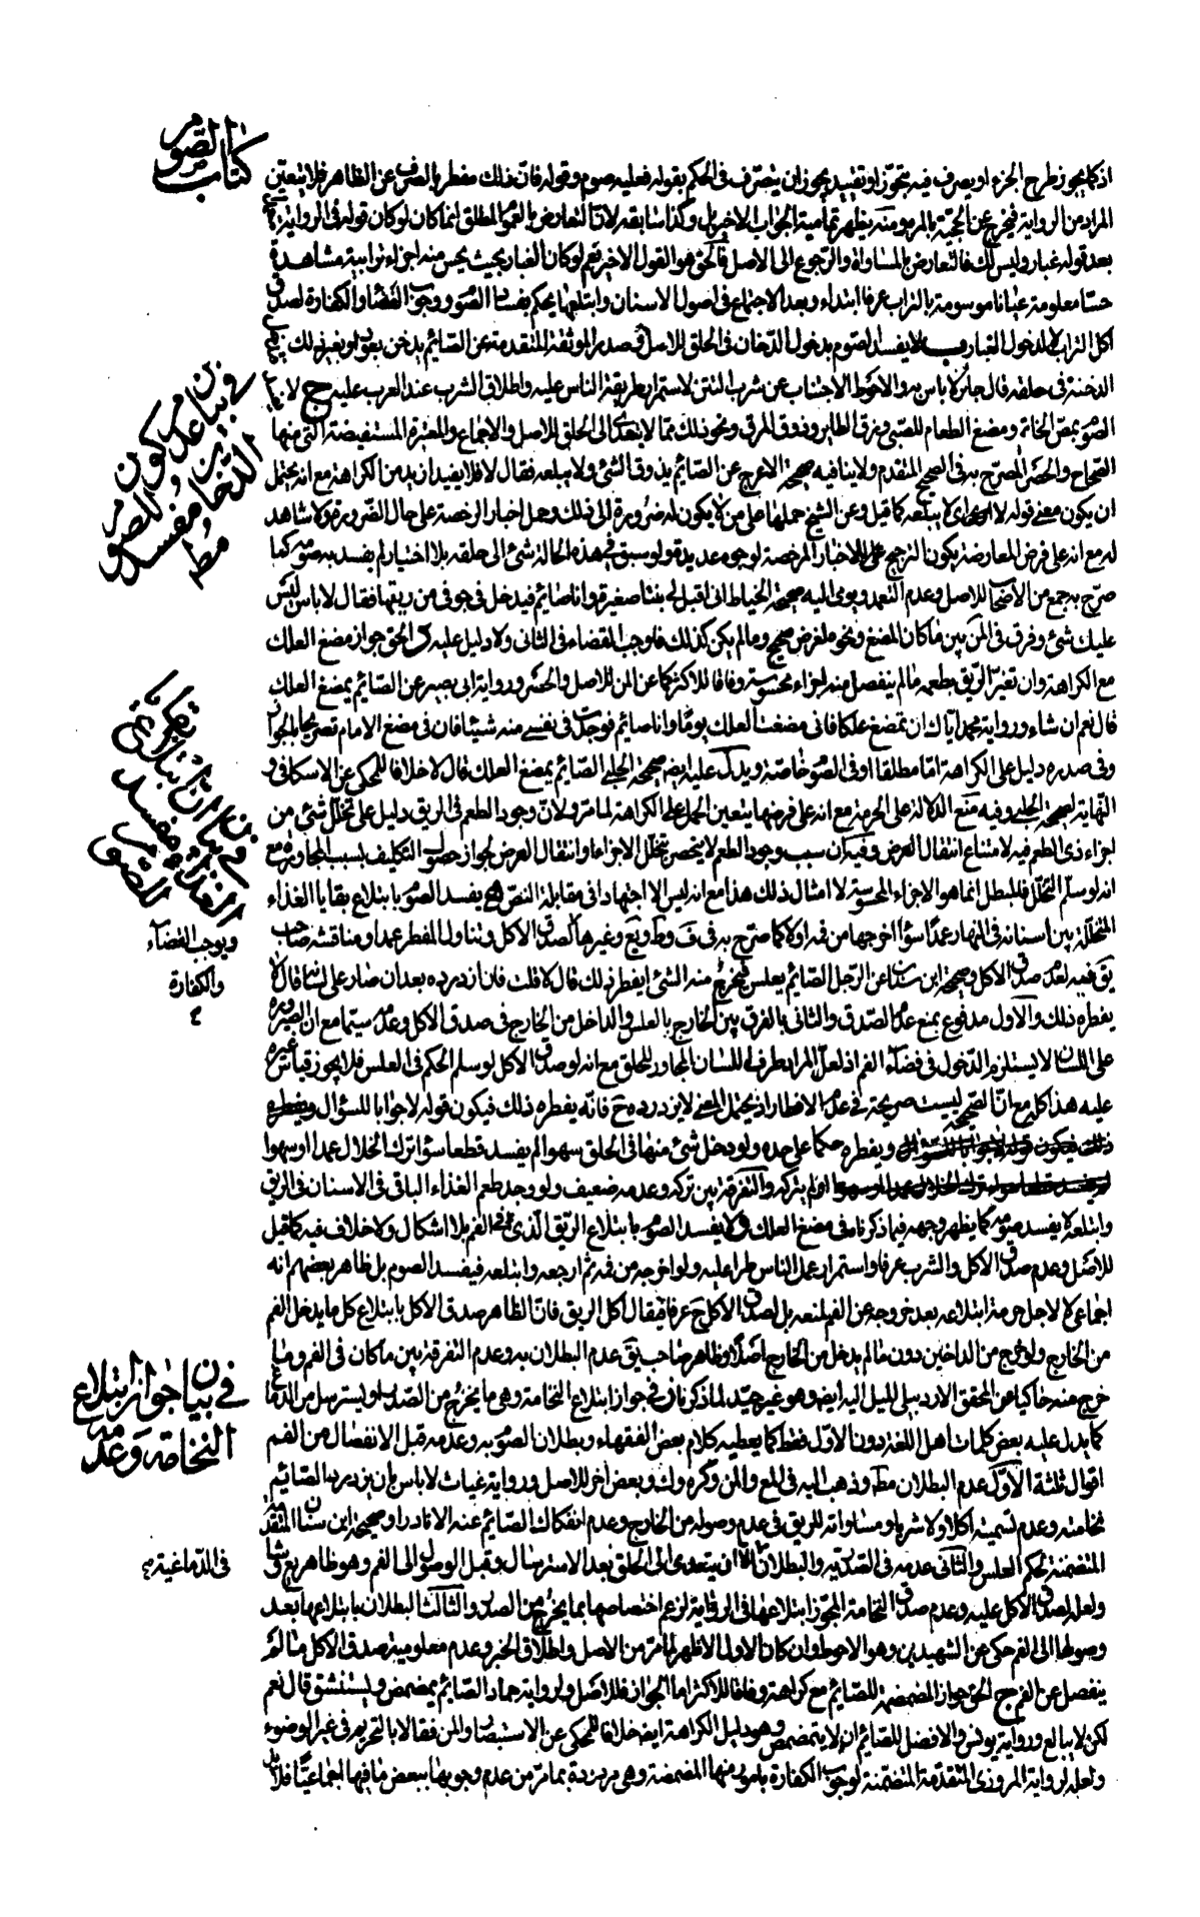 كتاب الصوم
اذ كما يجوز طرح الجزء او يصرف فيه بتجوز او تقييد يجوز ان يتصرف في الحكم بقوله فعليه صوم وقوله فان ذلك مفطر بالصرف عن الظاهر فلا يتعين
المراد من الرواية فيخرج عن الحجية بالمرة ومنه يظهر تمامية الجواب الاخير بل وكذا سابقه لان التعارض بالعموم المطلق انما كان لو كان قوله في الرواية
بعد قوله غبار وليس كك فالتعارض بالمساواة والرجوع الى الاصل فالحق هو القول الاخير نعم لو كان الغبار بحيث يحس منه اجزاء ترابية مشاهدة
حسا معلومة عيانا موسومة بالتراب عرفا ابتداء وبعد الاجتماع في اصول الاسنان وابتلعها يحكم بفساد الصوم ووجوب القضاء والكفارة لصدق
اكل التراب لا لدخول الغبار لا يفسد الصوم بدخول الدخان في الحلق للاصل وصدر الموثقة المتقدمة عن الصائم يدخن بعود او بغير ذلك
الدخنة في حلقه قال جائز لا باس به والاحوط الاجتناب عن شرب التتن لاستمرار طريقة الناس عليه واطلاق الشرب عند العرب عليه ج لا
الصوم بمص الخاتم ومضغ الطعام للصبي وزق الطاير وذوق المرق ونحو ذلك مما لا يتعدى الى الحلق للاصل والاجماع والمعتبرة المستفيضة التي منها
الصحاح والحصر المصرح به في الصحيح المتقدم ولا ينافيه صحيحة الاعرج عن الصائم يذوق الشئ ولا يبلعه فقال لا فلا يفيد ازيد من الكراهة مع انه يحتمل
ان يكون معنى قوله لا اي لا يبلعه كما قيل وعن الشيخ حملها على من لا يكون له ضرورة الى ذلك وحمل اخبار الرخصة على حال الضرورة ولا شاهد
له مع انه على فرض المعارضة يكون الترجيح للاخبار المرخصة لوجوه عديدة ولو سبق في هذه الحالة شئ الى حلقه بلا اختيار لم يفسد به صومه كما
صرح به جمع من الاصحاب للاصل وعدم التعمد ويومى اليه صحيحة الخياط انى اقبل لي بنتا صغيرة وانا صائم فيدخل في جوفي من ريقها فقال لا باس ليس
عليك شئ وفرق في المن بين ما كان المضغ ونحوه لغرض صحيح وما لم يكن كذلك فاوجب القضاء في الثاني ولا دليل عليه الحق جواز مضغ العلك
مع الكراهة وان تغير الريق بطعمه ما لم ينفصل منه اجزاء محسوسة وفاقا للاكثر كما عن المن للاصل والحصر ورواية ابي بصير عن الصائم يمضغ العلك
قال نعم ان شاء ورواية محمد اياك ان تمضغ علكا فاني مضغت العلك يوما وانا صائم فوجدت في نفسي منه شيئا فان في مضغ الامام تصريحا بالجواز
وفي صدره دليل على الكراهة اما مطلقا او في الصوم خاصة ويدل عليه ايضا صحيحة الحلبي الصائم يمضغ العلك قال لا خلافا للمحكي عن الاسكافي و
النهاية لصحيحة الحلبي وفيه منع الدلالة على الحرمة مع انه على فرضها يتعين الحمل على الكراهة لما مر ولان وجود الطعم في الريق دليل على تحلل شئ من
اجزاء ذي الطعم فيه لامتناع انتقال العرض وفيه ان سبب وجود الطعم لا ينحصر بتحلل الاجزاء وانتقال العرض لجواز حصول التكليف بسبب المجاورة مع
انه لو سلم التحلل فالمبطل انما هو الاجزاء المحسوسة لا امثال ذلك هذا مع انه ليس الا اجتهادا في مقابلة النص يفسد الصوم بابتلاع بقايا الغذاء
المتخللة بين اسنانه في النهار عمدا سواء اخرجها من فمه او لا كما صرح به في ف وط ويع وغيرها لصدق الاكل وتناول المفطر عمدا ومناقشة صاحب
يق فيه لعدم صدق الاكل وصحيحة ابن سنان عن الرجل الصائم يقلس فيخرج منه الشئ ايفطر ذلك قال لا قلت فان ازدرده بعد ان صار على لسانه قال لا
يفطره ذلك والاول مدفوع بمنع عدم الصدق والثاني بالفرق بين الخارج بالقلس والداخل من الخارج في صدق الاكل وعدمه سيما مع ان الصيرورة
على اللسان لا يستلزم الدخول في فضاء الفم اذ لعل المراد طرف اللسان المجاور للحلق مع انه لو صدق الاكل لو سلم الحكم في القلس فلا يجوز قياس غيره
عليه هذا كله مع ان الصحيحة ليست صريحة في عدم الافطار اذ يحتمل المعنى لا يزدرده ح فانه يفطره ذلك فيكون قوله لا جوابا للسؤال
ويفطره حكما على حده ولو دخل شئ منها في الحلق سهوا لم يفسد قطعا سواء ترك الخلال عمدا او سهوا
ام لم يتركه والتفرقة بين تركه وعدمه ضعيف ولو وجد طعم الغذاء الباقي في الاسنان في الريق
وابتلعه لا يفسد صومه كما يظهر وجهه فيما ذكرناه في مضغ العلك ولا يفسد الصوم بابتلاع الريق الذي في الفم بلا اشكال ولا خلاف فيه كما قيل
للاصل وعدم صدق الاكل والشرب عرفا واستمرار عمل الناس طرا عليه ولو اخرجه من فمه ثم ارجعه وابتلعه فيفسد الصوم بل ظاهر بعضهم انه
اجماعي لا لاجل حرمة ابتلاعه بعد خروجه عن الفم لمنعه بل لصدق الاكل ح عرفا فيقال اكل الريق فان الظاهر صدق الاكل بابتلاع كل ما يدخل الفم
من الخارج والخروج من الداخل دون ما لم يدخل من الخارج اصلا وظاهر صاحب يق عدم البطلان به وعدم التفرقة بين ما كان في الفم وما
خرج منه حاكيا عن المحقق الاردبيلي الميل اليه ايضا وهو غير جيد لما ذكرنا في جواز ابتلاع النخامة وهي ما يخرج من الصدر او يسترسل من الدماغ
كما يدل عليه بعض كلمات اهل اللغة دون الاول فقط كما يعطيه كلام بعض الفقهاء وبطلان الصوم به وعدمه قبل الانفصال من الفم
اقوال ثلثة الاول عدم البطلان مط وذهب اليه في المع والمن وكره وك وبعض اخر للاصل ورواية غياث لا باس بان يزدرد الصائم
نخامته وعدم تسميته اكلا ولا شربا ومساواته للريق في عدم وصوله من الخارج وعدم انفكاك الصائم عنه الا نادرا وصحيحة ابن سنان المتقدمة
المتضمنة لحكم القلس والثاني عدمه في الصدرية والبطلان ان يتعدى الى الحلق بعد الاسترسال وقبل الوصول الى الفم وهو ظاهر يع وشا
ولعله لصدق الاكل عليه وعدم صدق النخامة المجوز ابتلاعها في الرواية لزعم اختصاصها بما يخرج من الصدر والثالث البطلان بابتلاعها بعد
وصولها الى الفم حكي عن الشهيدين وهو الاحوط وان كان الاول الاظهر لما مر من الاصل واطلاق الخبر وعدم معلومية صدق الاكل ما لم
ينفصل عن الفم الحق جواز المضمضة للصائم مع كراهة وفاقا للاكثر اما الجواز فللاصل ولرواية حماد الصائم يمضمض ويستنشق قال نعم
لكن لا يبالغ ورواية يونس والافضل للصائم ان لا يتمضمض وهو دليل الكراهة ايضا خلافا للمحكي عن الاستبصار والمن فقالا بالتحريم في غير الوضوء
ولعله لرواية المروزي المتقدمة المتضمنة لوجوب الكفارة بامور منها المضمضة وهي مردودة بما مر من عدم وجوبها ببعض ما فيها اجماعيا فلا
في بيان عدم كون شرب الدخان مفسدا للصوم مط
في بيان ان ابتلاع بقايا الغذاء مفسد الصوم
ويوجب القضاء
والكفارة
في بيان جواز ابتلاع
النخامة وعدمه
في الدماغية